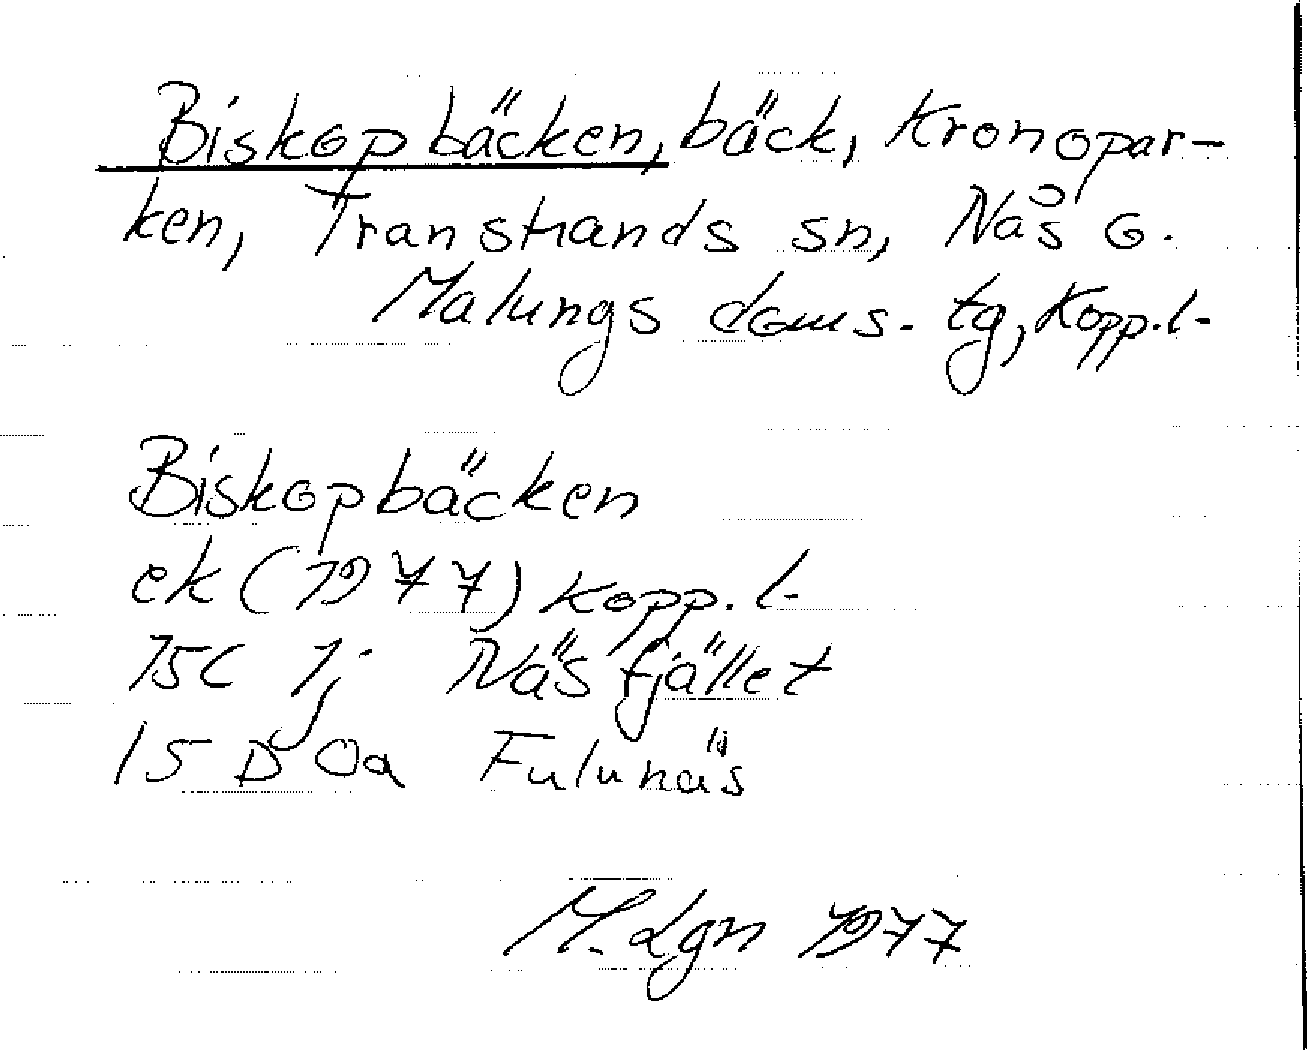 Biskopbäcken, bäck, Kronopar-
ken, Transtrands sn, Nås o.
Malungs doms. tg, Kopp. l.
Biskopbäcken
ek (1977) Kopp. l.
15C 1j Näsfjället
15 D 0a Fulunäs
M. Lgn 1977